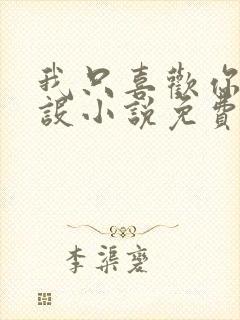 我只喜歡你
設小說免費
李渠䶮